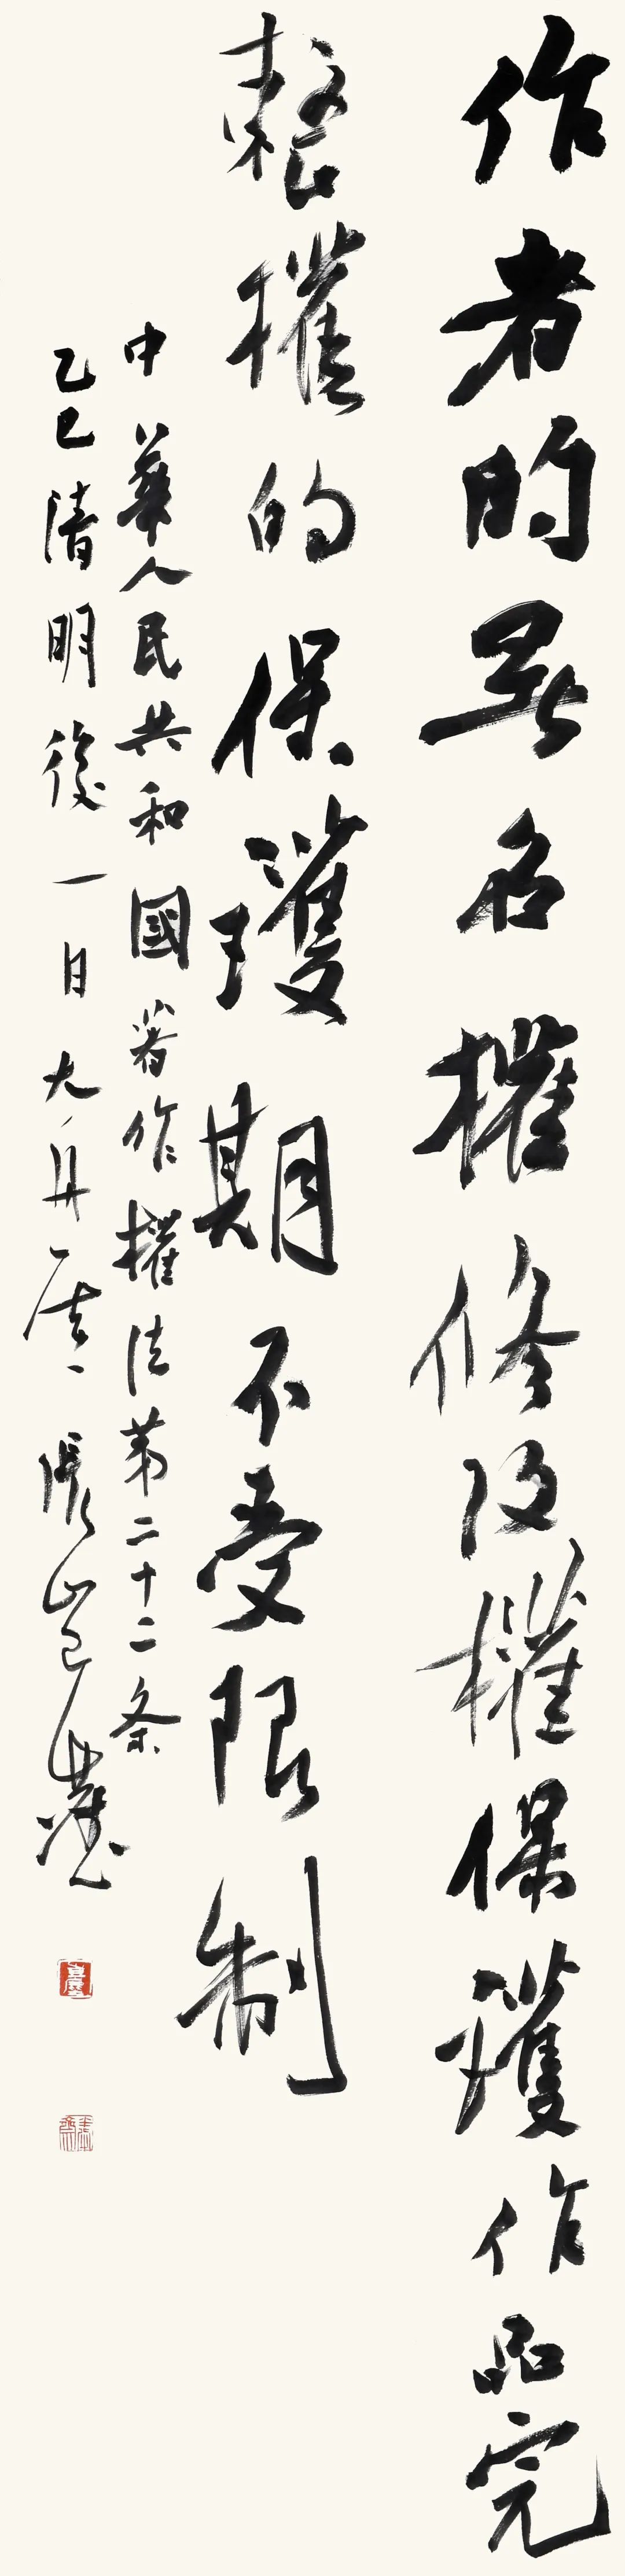 作者的署名權修改權保護作品完
整權的保護期不受限制
中華人民共和國著作權法第二十二条
乙巳清明後一日 張